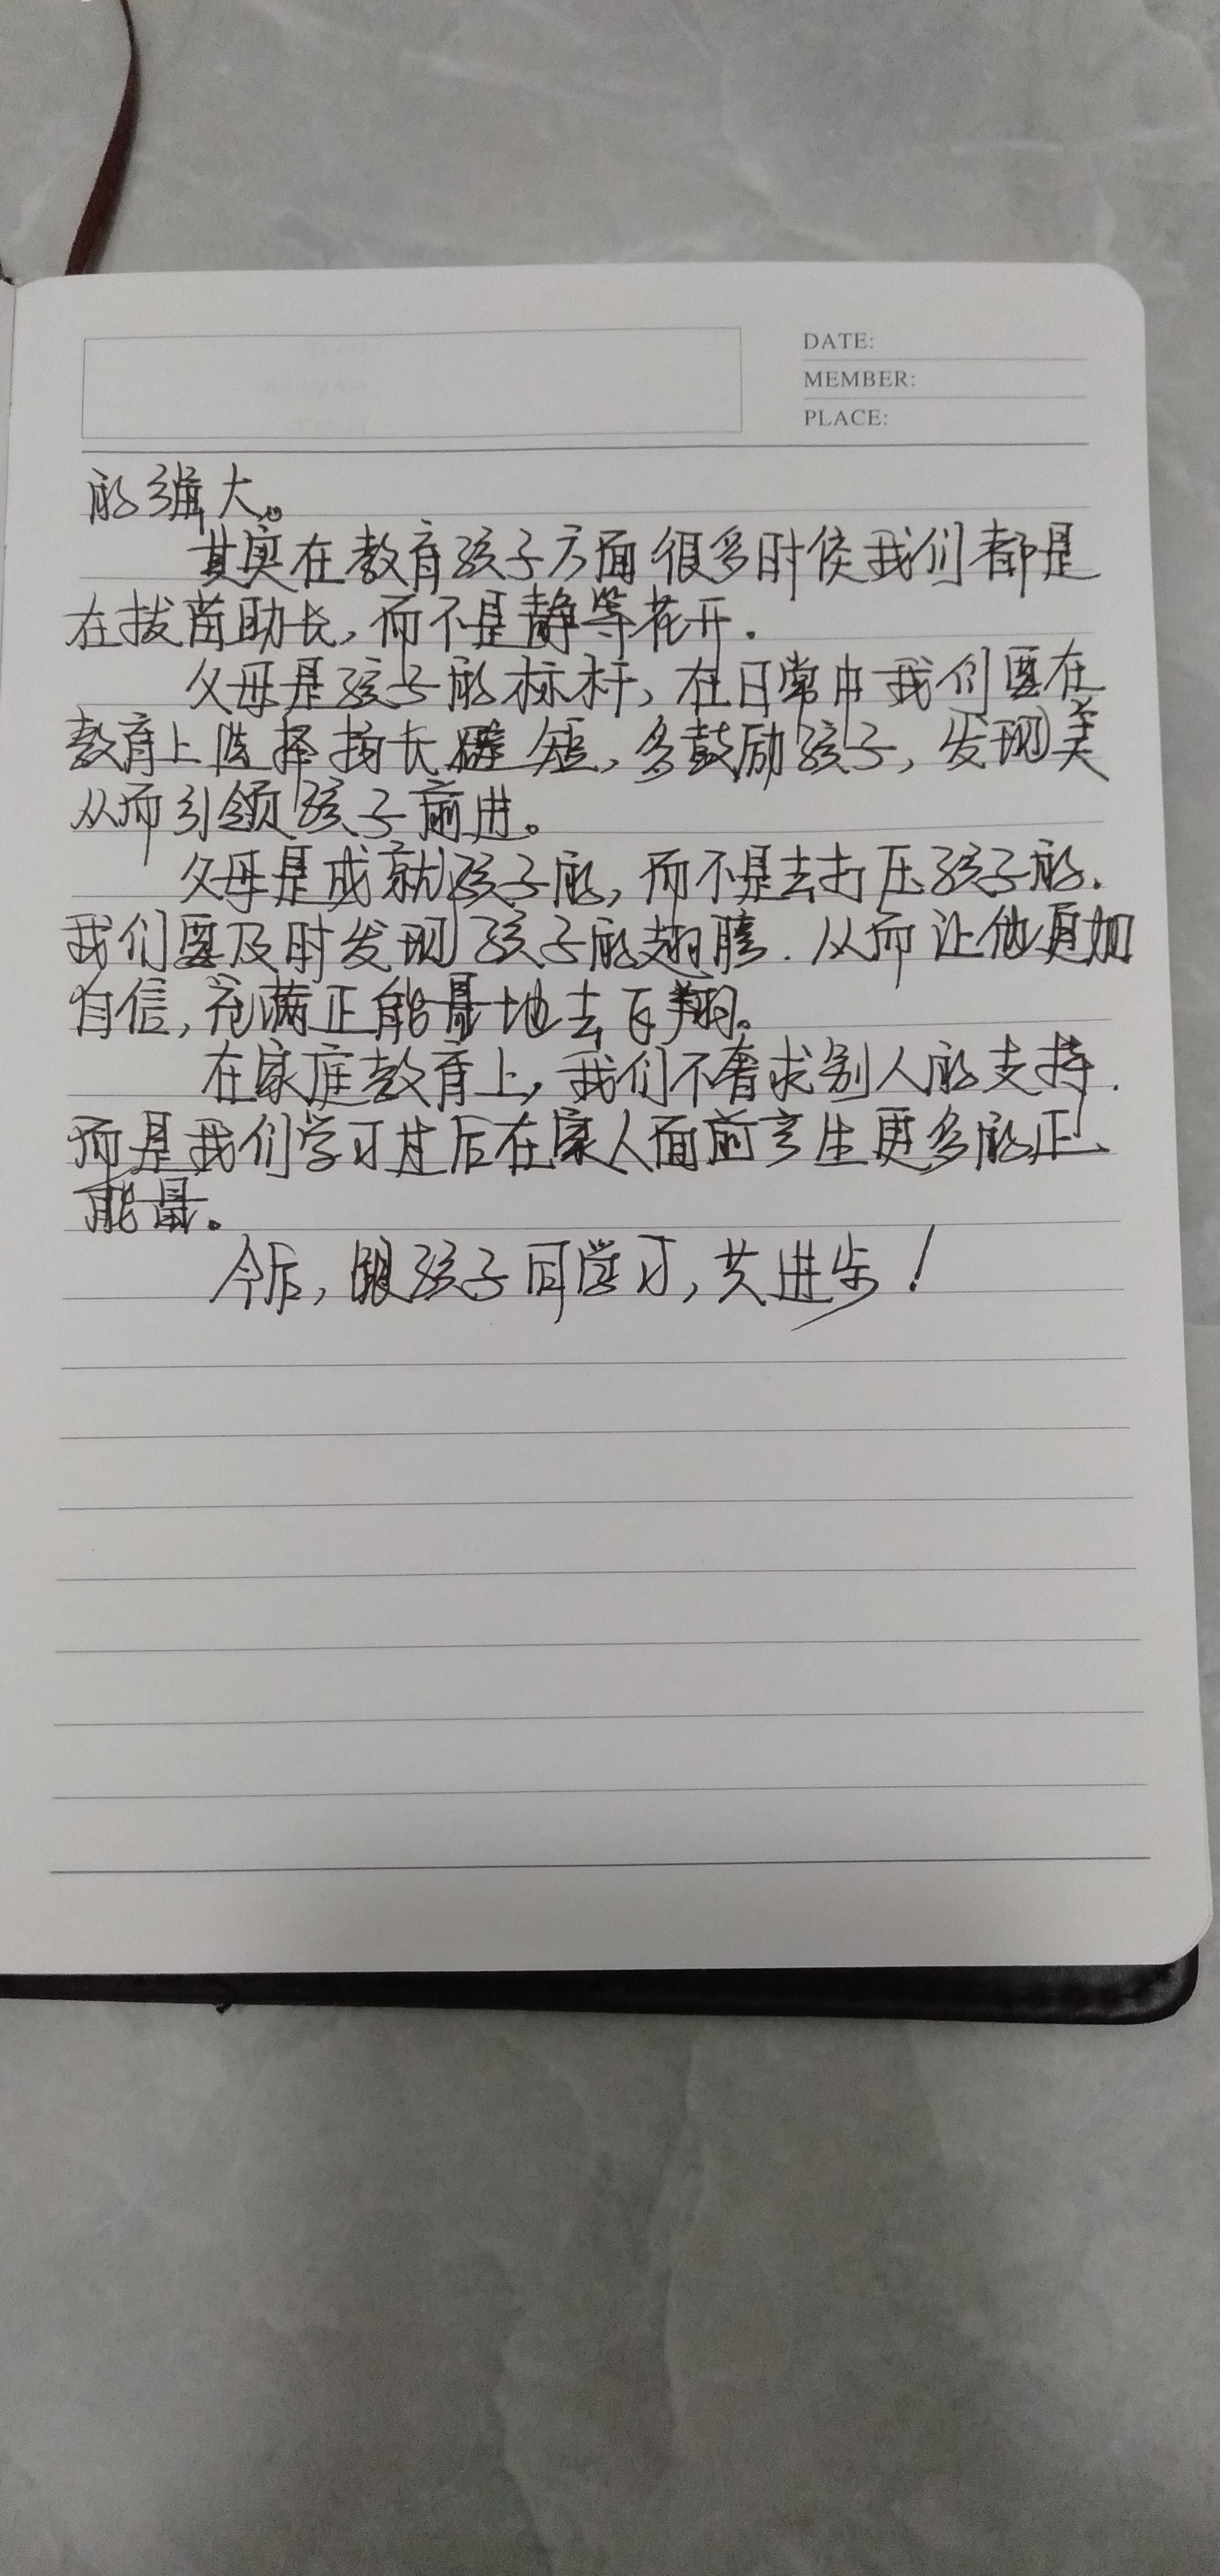 DATE:
MEMBER:
PLACE:
的强大。
其实在教育孩子方面很多时候我们都是
在拔苗助长,而不是静等花开.
父母是孩子的标杆,在日常中我们要在
教育上选择扬长避短,多鼓励孩子,发现美
从而引领孩子前进。
父母是成就孩子的,而不是去打压孩子的.
我们要及时发现孩子的翅膀.从而让他更加
自信,充满正能量地去飞翔。
在家庭教育上,我们不奢求别人的支持.
而是我们学习过后在家人面前产生更多的正
能量。
今后,跟孩子同学习,共进步!